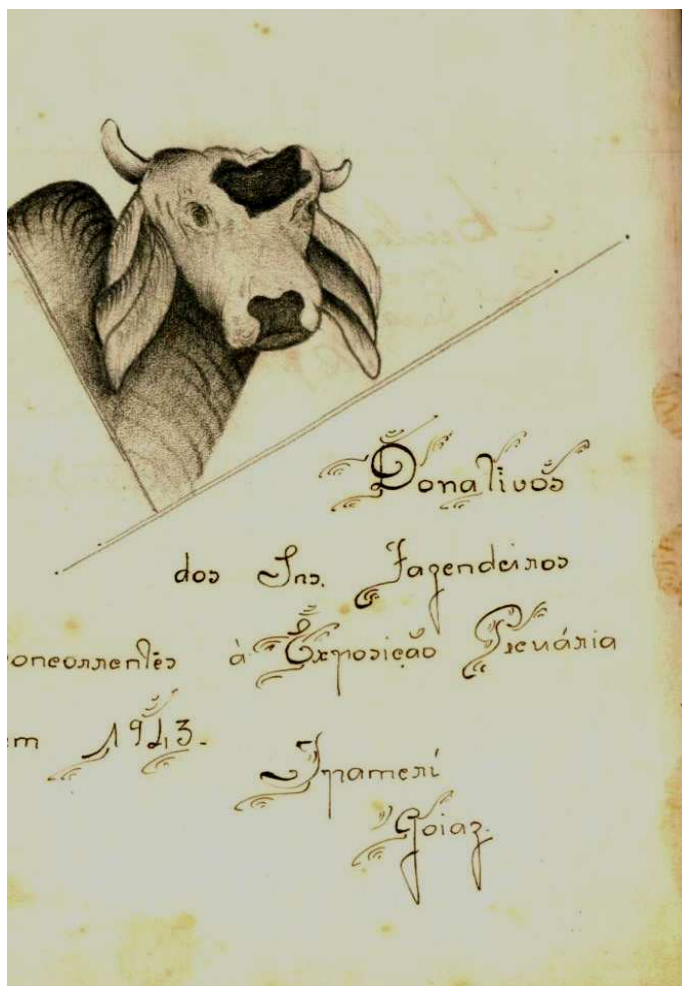 Donativos
dos Srs. Fazendeiros
oncorrentes à Exposição Pecuária
m 1943.
Ipamerí
Goiaz.